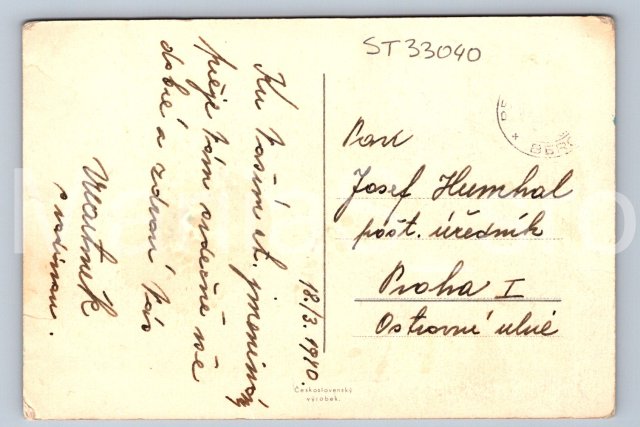 ST33040
18./3. 1940.
Ku Vašim st. jmeninám
přeje Vám srdečně vše
dobré a zdraví Vás
s rodinou.
Pan
Josef Humhal
pošt. úředník
Praha I
Ostrovní ulice
Československý
výrobek.